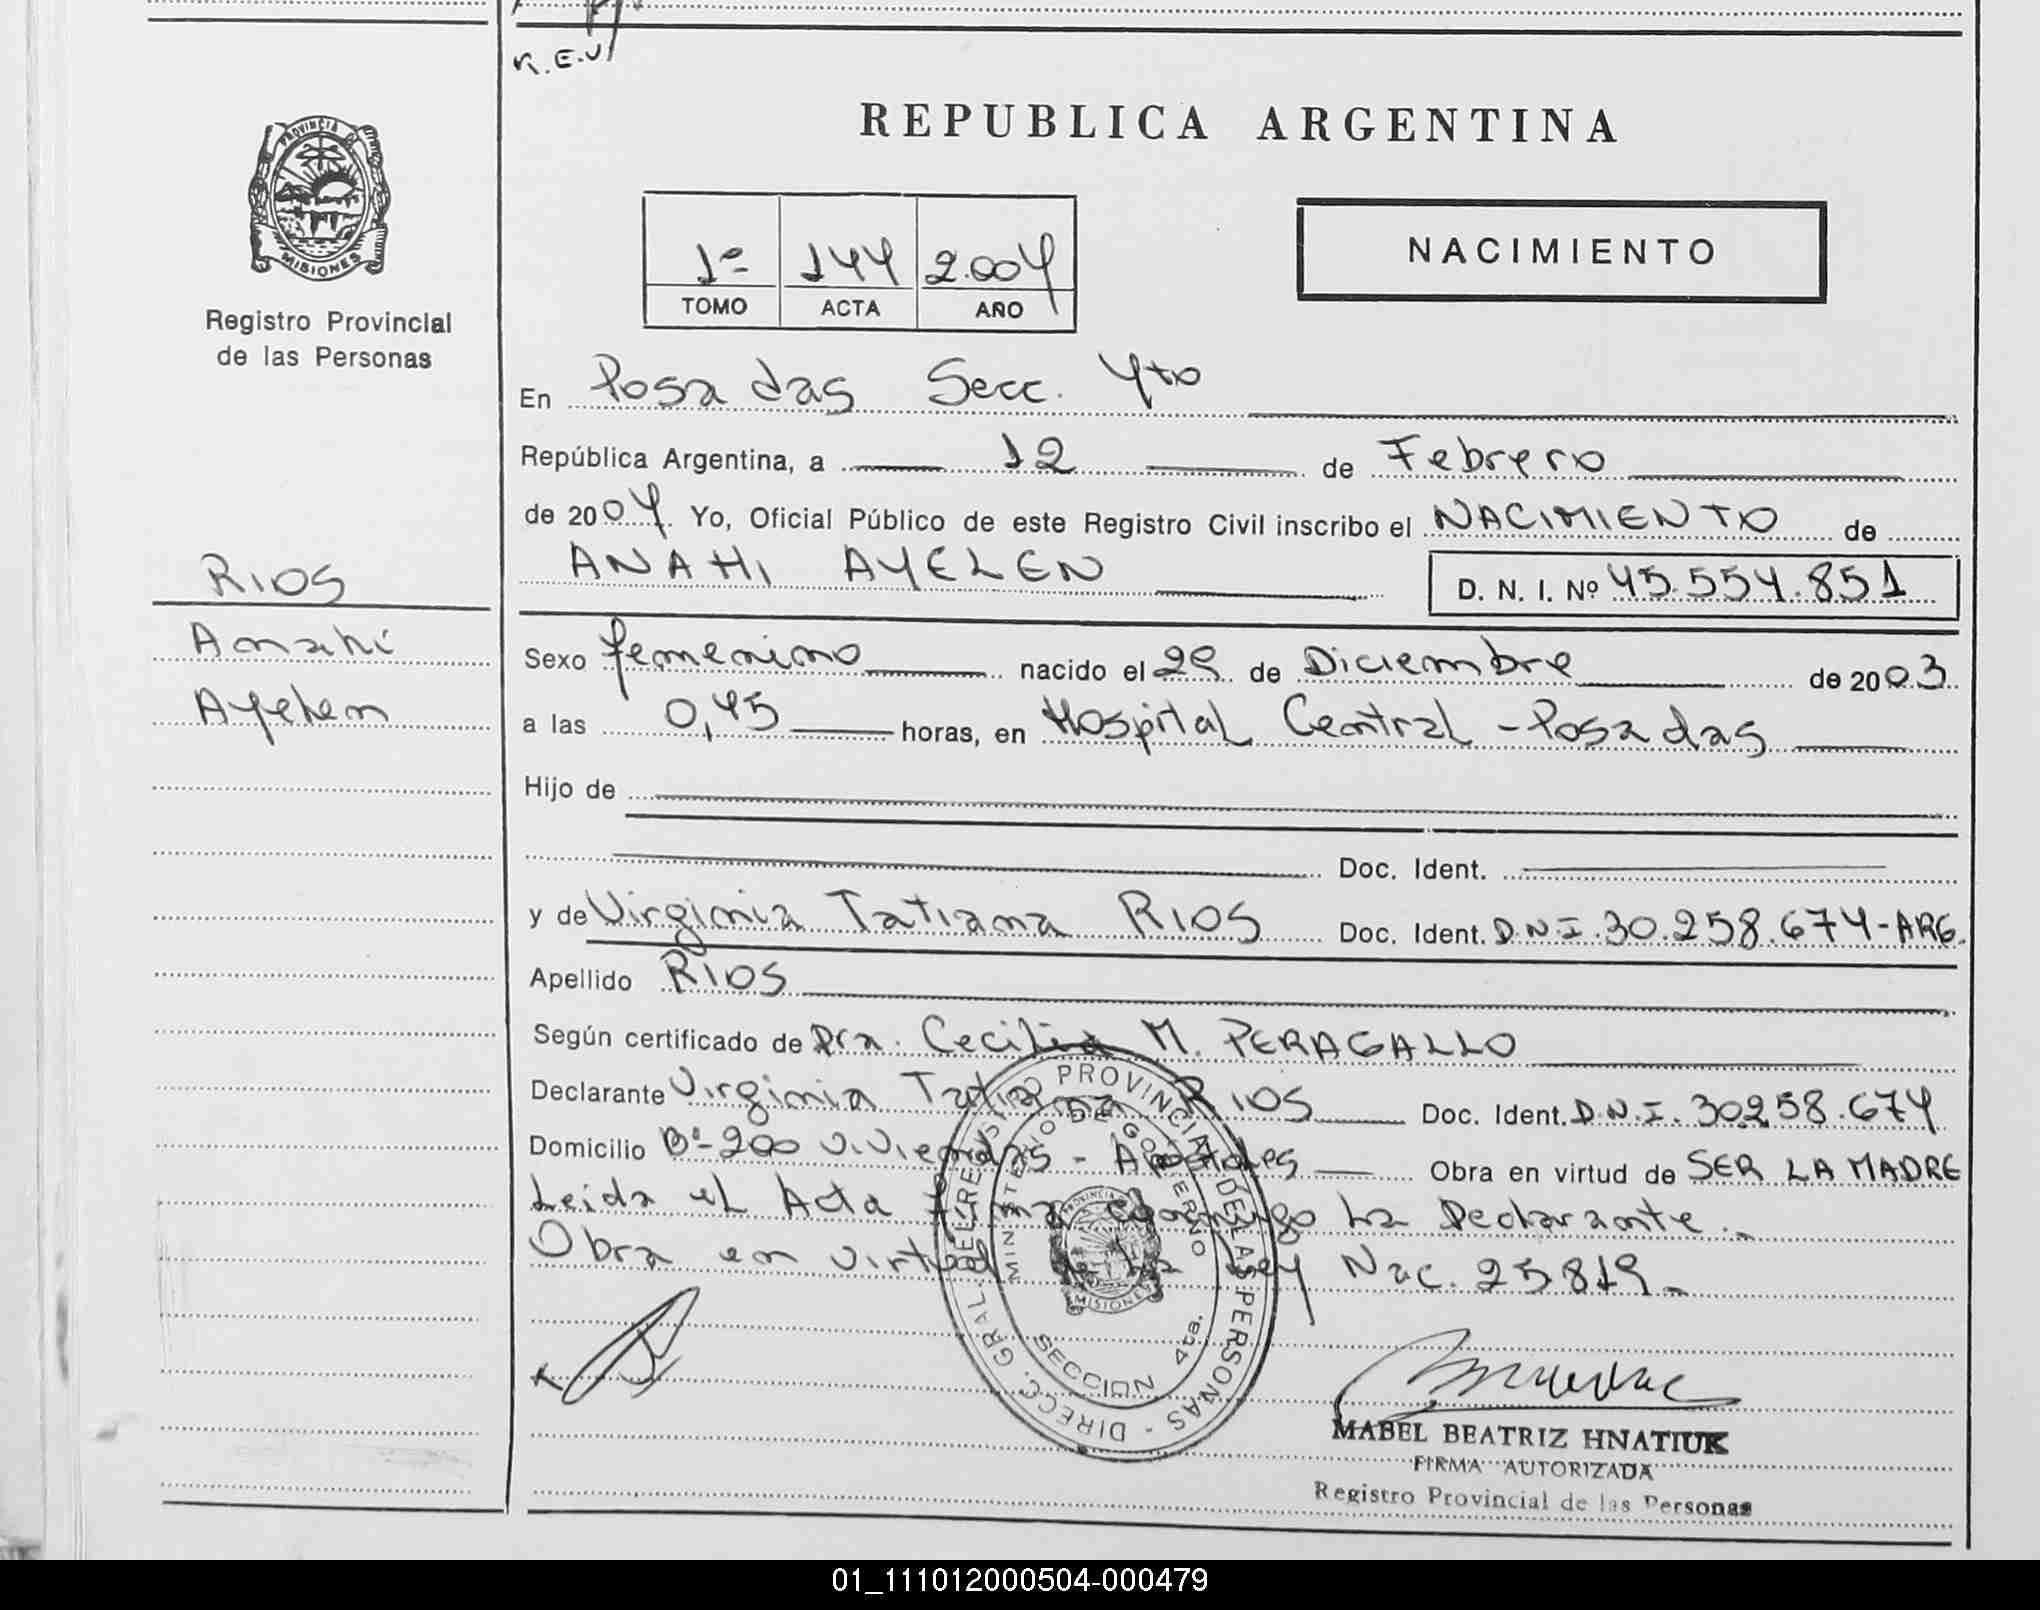 R.E.V
REPUBLICA ARGENTINA
PROVINCIA DE
MISIONES
Registro Provincial
de las Personas
NACIMIENTO
1º 144 2.004
TOMO ACTA AÑO
En Posadas Secc. 4to
República Argentina, a 12 de Febrero
de 2004. Yo, Oficial Público de este Registro Civil inscribo el NACIMIENTO de
ANAHI AYELEN D. N. I. Nº 45.554.851
RIOS
Anahi
Ayelen
Sexo femenino nacido el 29 de Diciembre de 2003
a las 0,45 horas, en Hospital Central - Posadas
Hijo de
Doc. Ident.
y de Virginia Tatiana RIOS Doc. Ident. D.N.I. 30.258.674-ARG.
Apellido RIOS
Según certificado de Dra. Cecilia M. PERAGALLO
Declarante Virginia Tatiana RIOS Doc. Ident. D.N.I. 30258.674
Domicilio Bº-200 Viviendas - Apóstoles Obra en virtud de SER LA MADRE
Leida el Acta firma conmigo la Declarante.-
Obra en virtud de la Ley Nac. 25.819.-
DIRECC. GRAL. DEL REGISTRO PROVINCIAL DE LAS PERSONAS -
MINISTERIO DE GOBIERNO
PROVINCIA DE
MISIONES
SECCION 4ta.
MABEL BEATRIZ HNATIUK
FIRMA AUTORIZADA
Registro Provincial de las Personas
01_111012000504-000479